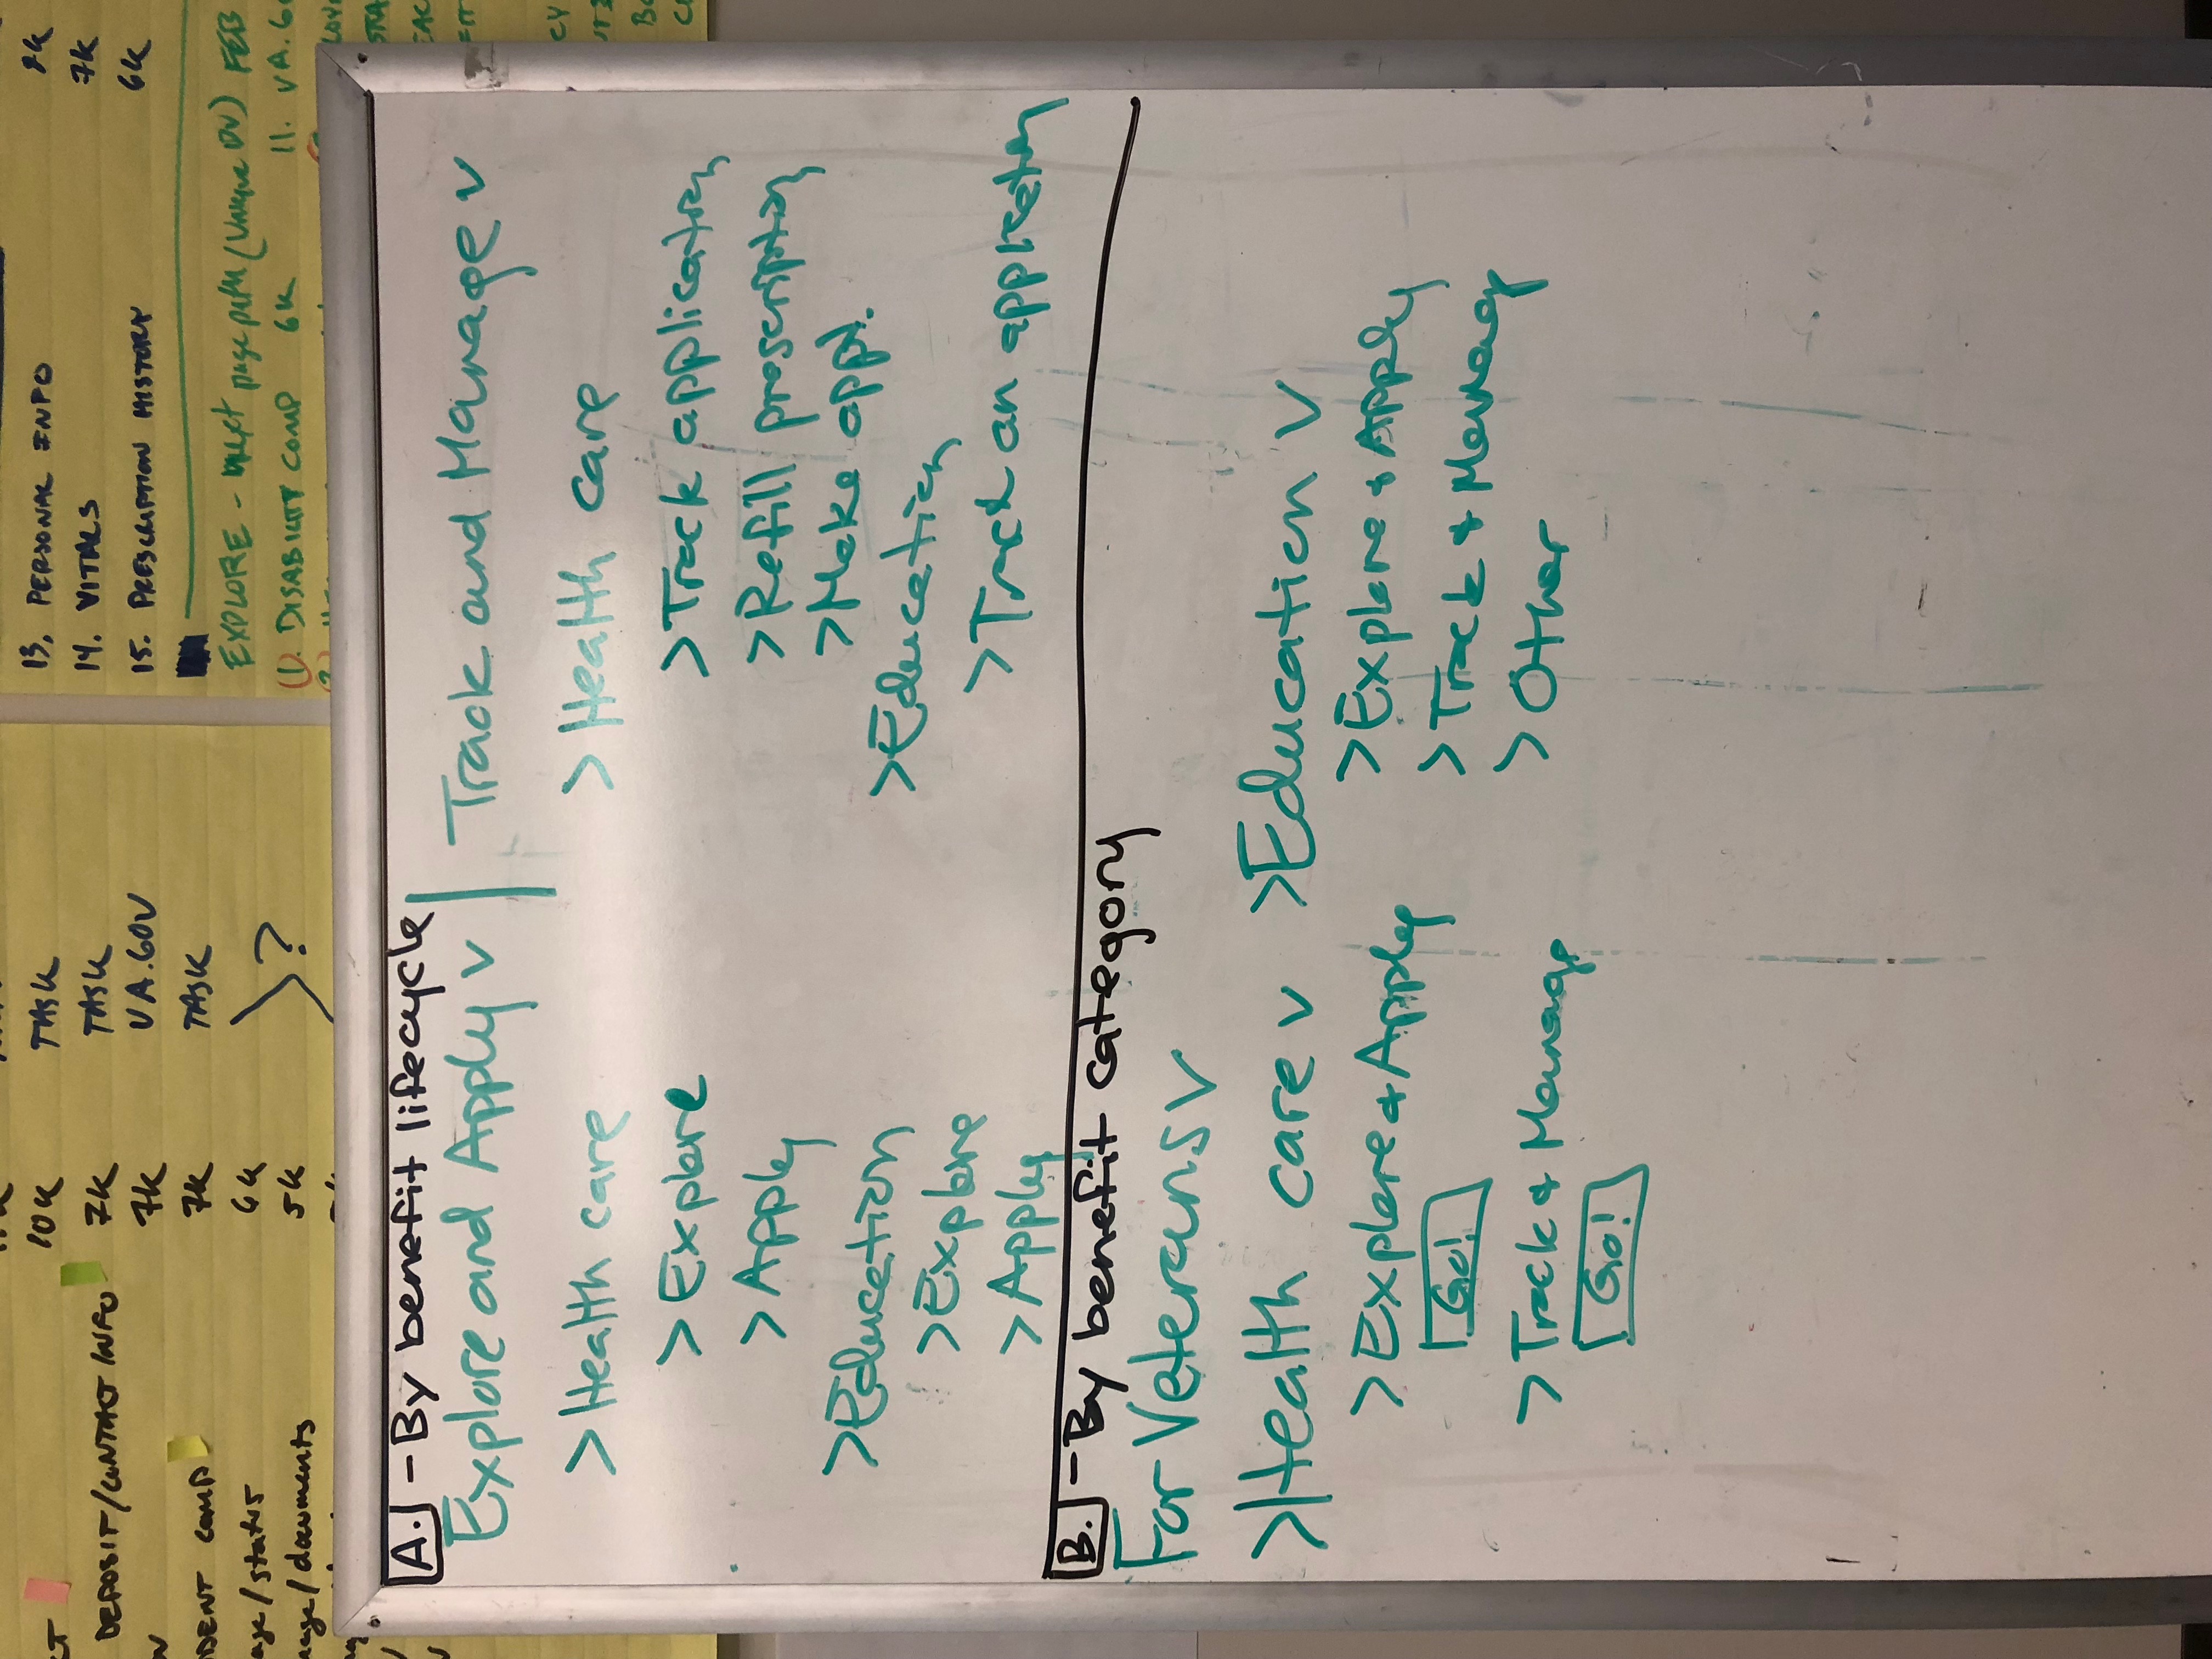 10K TASK
DEPOSIT/CONTACT INFO 7K TASK
7K VA.GOV
DENT COMP 7K TASK
/status 6K
/documents 5K
?
13. PERSONAL INFO
14. VITALS 7K
15. PRESCRIPTION HISTORY 6K
EXPLORE - next page path (Unique PV) FEB
1. DISABILITY COMP 6K 11. VA.G
A. - By benefit lifecycle
Explore and Apply v | Track and Manage v
> Health care
> Explore
> Apply
> Education
> Explore
> Apply
> Health care
> Track application
> Refill prescription
> Make appt.
> Education
> Track an application
B. - By benefit category
For Veterans v
> Health care v > Education v
> Explore & Apply
Go!
> Track & Manage
Go!
> Explore & Apply
> Track & Manage
> Other